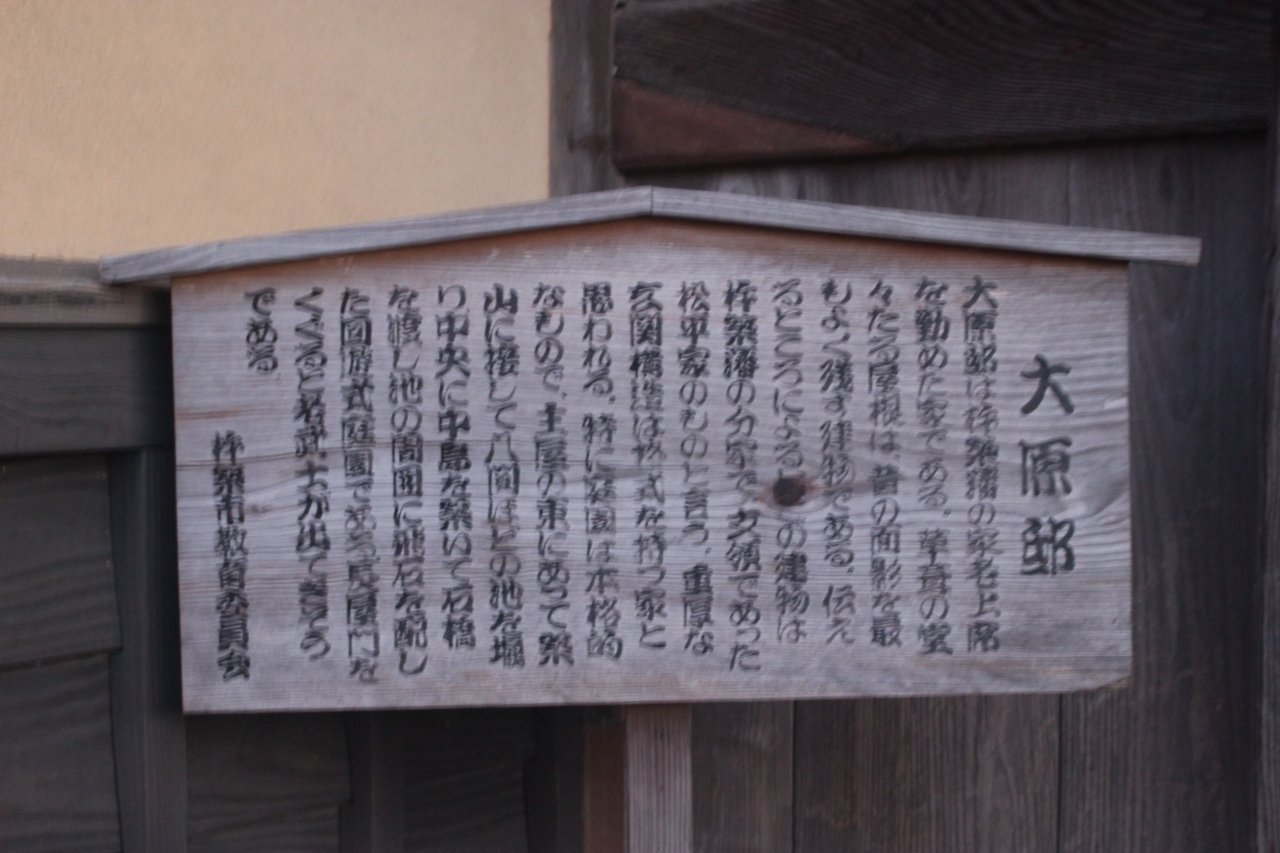 大原邸
大原邸は杵築藩の家老上席
を勤めた家である。草葺の堂
々たる屋根は、昔の面影を最
もよく残す建物である。伝え
るところによると この建物は
杵築藩の分家で、久領であった
松平家のものと言う。重厚な
玄関構造は格式を持つ家と
思われる。特に庭園は本格的
なもので、主屋の東にあって築
山に接して八間ほどの池を堀
り中央に中島を築いて石橋
を渡し池の周囲に飛石を配し
た回游式庭園である長屋門を
くぐると若武士が出てきそう
である
杵築市教育委員会